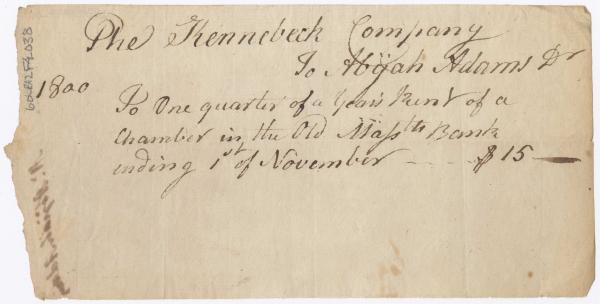 The Kennebeck Company
To Abijah Adams Dr
1800
To One quarter of a Years Rent of a
Chamber in the Old Massts Bank
ending 1st of November - - - $15 —